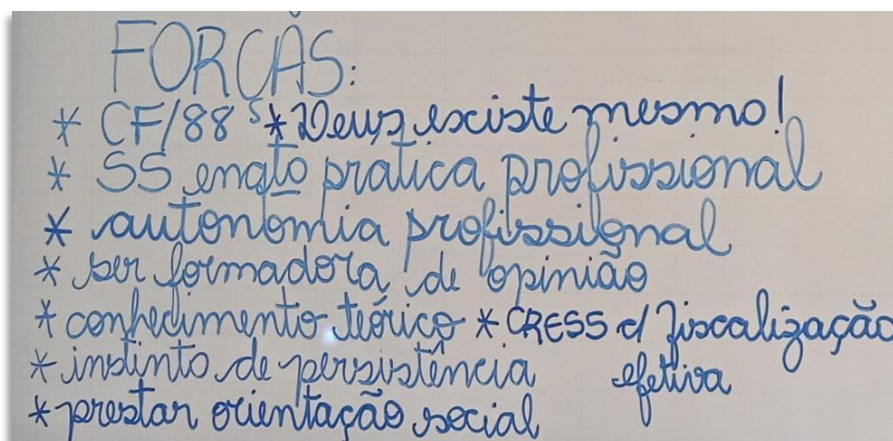 FORÇAS:
* CF/88 * Deus existe mesmo!
* SS enqto pratica profissional
* autonômia profissional
* ser formadora de opinião
* conhecimento teórico * CRESS c/ fiscalização
* instinto de persistência efetiva
* prestar orientação social